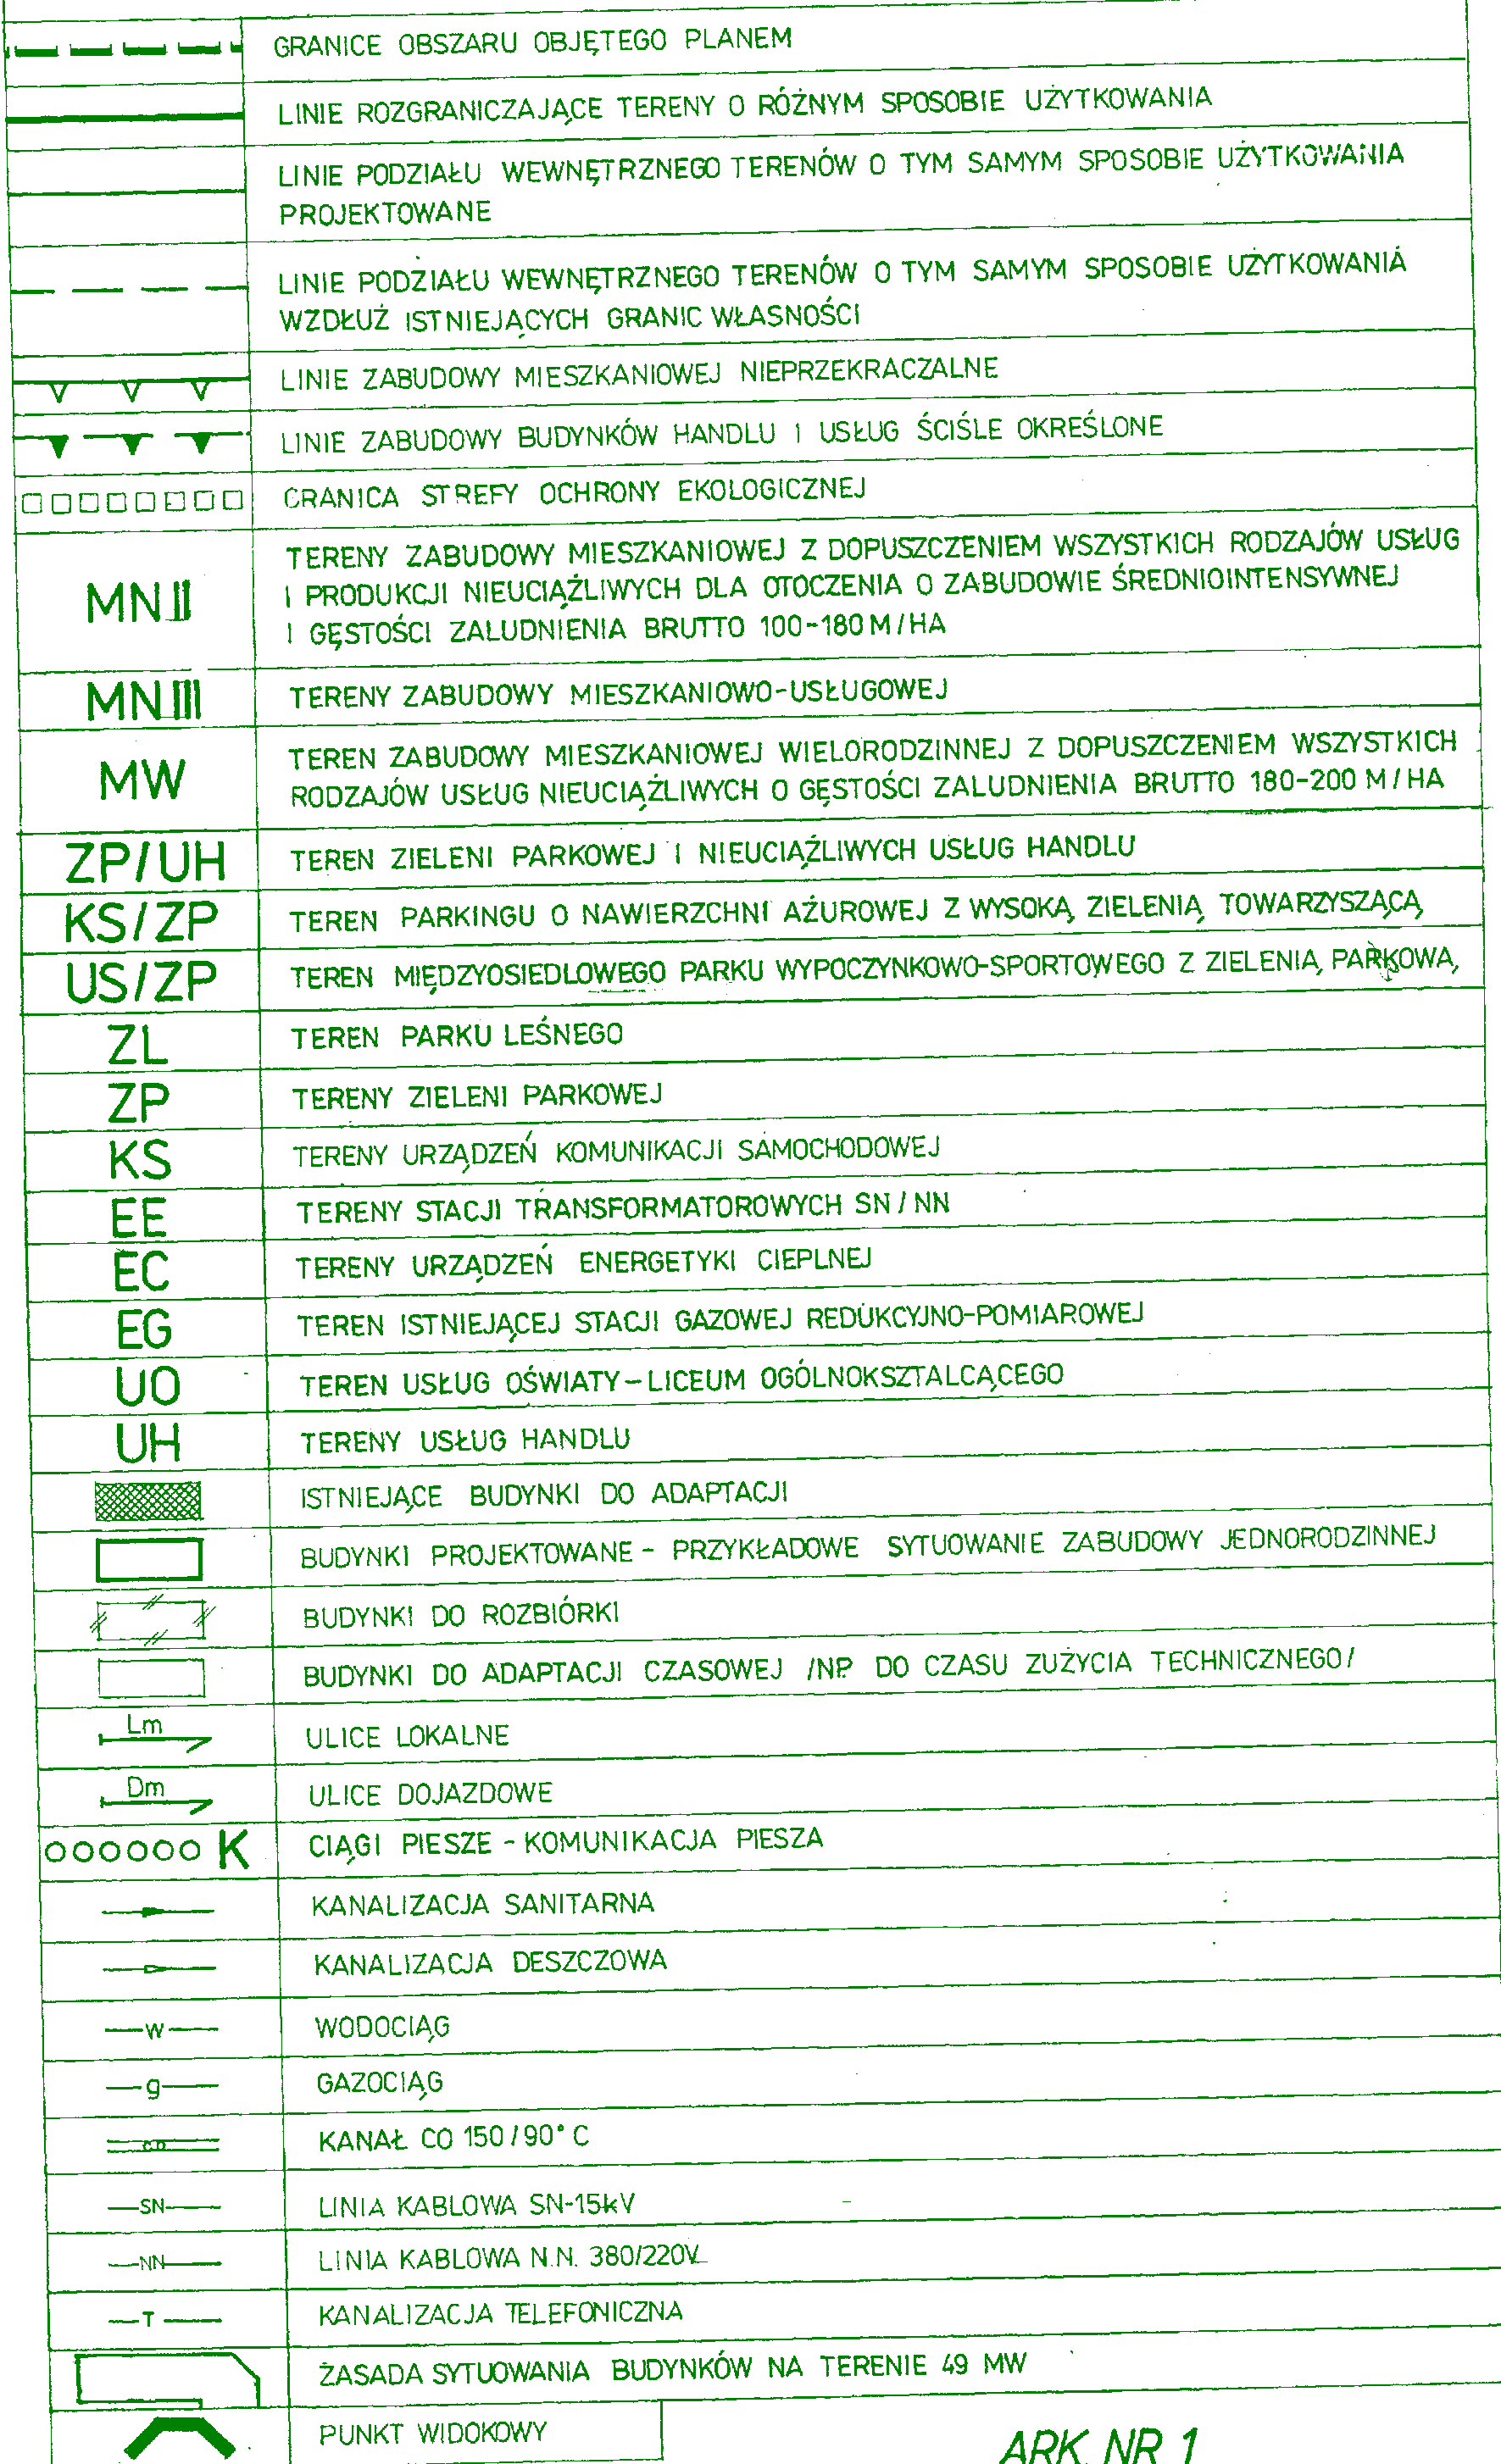 GRANICE OBSZARU OBJĘTEGO PLANEM
LINIE ROZGRANICZAJĄCE TERENY O RÓŻNYM SPOSOBIE UŻYTKOWANIA
LINIE PODZIAŁU WEWNĘTRZNEGO TERENÓW O TYM SAMYM SPOSOBIE UŻYTKOWANIA
PROJEKTOWANE
LINIE PODZIAŁU WEWNĘTRZNEGO TERENÓW O TYM SAMYM SPOSOBIE UŻYTKOWANIA
WZDŁUŻ ISTNIEJĄCYCH GRANIC WŁASNOŚCI
LINIE ZABUDOWY MIESZKANIOWEJ NIEPRZEKRACZALNE
LINIE ZABUDOWY BUDYNKÓW HANDLU I USŁUG ŚCIŚLE OKREŚLONE
GRANICA STREFY OCHRONY EKOLOGICZNEJ
MN II TERENY ZABUDOWY MIESZKANIOWEJ Z DOPUSZCZENIEM WSZYSTKICH RODZAJÓW USŁUG
I PRODUKCJI NIEUCIĄŻLIWYCH DLA OTOCZENIA O ZABUDOWIE ŚREDNIOINTENSYWNEJ
I GĘSTOŚCI ZALUDNIENIA BRUTTO 100-180 M/HA
MN III TERENY ZABUDOWY MIESZKANIOWO-USŁUGOWEJ
MW TEREN ZABUDOWY MIESZKANIOWEJ WIELORODZINNEJ Z DOPUSZCZENIEM WSZYSTKICH
RODZAJÓW USŁUG NIEUCIĄŻLIWYCH O GĘSTOŚCI ZALUDNIENIA BRUTTO 180-200 M/HA
ZP/UH TEREN ZIELENI PARKOWEJ I NIEUCIĄŻLIWYCH USŁUG HANDLU
KS/ZP TEREN PARKINGU O NAWIERZCHNI AŻUROWEJ Z WYSOKĄ ZIELENIĄ TOWARZYSZĄCĄ
US/ZP TEREN MIĘDZYOSIEDLOWEGO PARKU WYPOCZYNKOWO-SPORTOWEGO Z ZIELENIĄ PARKOWĄ
ZL TEREN PARKU LEŚNEGO
ZP TERENY ZIELENI PARKOWEJ
KS TERENY URZĄDZEŃ KOMUNIKACJI SAMOCHODOWEJ
EE TERENY STACJI TRANSFORMATOROWYCH SN/NN
EC TERENY URZĄDZEŃ ENERGETYKI CIEPLNEJ
EG TEREN ISTNIEJĄCEJ STACJI GAZOWEJ REDUKCYJNO-POMIAROWEJ
UO TEREN USŁUG OŚWIATY-LICEUM OGÓLNOKSZTALCĄCEGO
UH TERENY USŁUG HANDLU
ISTNIEJĄCE BUDYNKI DO ADAPTACJI
BUDYNKI PROJEKTOWANE - PRZYKŁADOWE SYTUOWANIE ZABUDOWY JEDNORODZINNEJ
BUDYNKI DO ROZBIÓRKI
BUDYNKI DO ADAPTACJI CZASOWEJ /NP. DO CZASU ZUŻYCIA TECHNICZNEGO/
Lm ULICE LOKALNE
Dm ULICE DOJAZDOWE
K CIĄGI PIESZE - KOMUNIKACJA PIESZA
KANALIZACJA SANITARNA
KANALIZACJA DESZCZOWA
W WODOCIĄG
g GAZOCIĄG
KANAŁ CO 150/90°C
SN LINIA KABLOWA SN-15kV
NN LINIA KABLOWA N.N. 380/220V
T KANALIZACJA TELEFONICZNA
ZASADA SYTUOWANIA BUDYNKÓW NA TERENIE 49 MW
PUNKT WIDOKOWY
ARK. NR 1